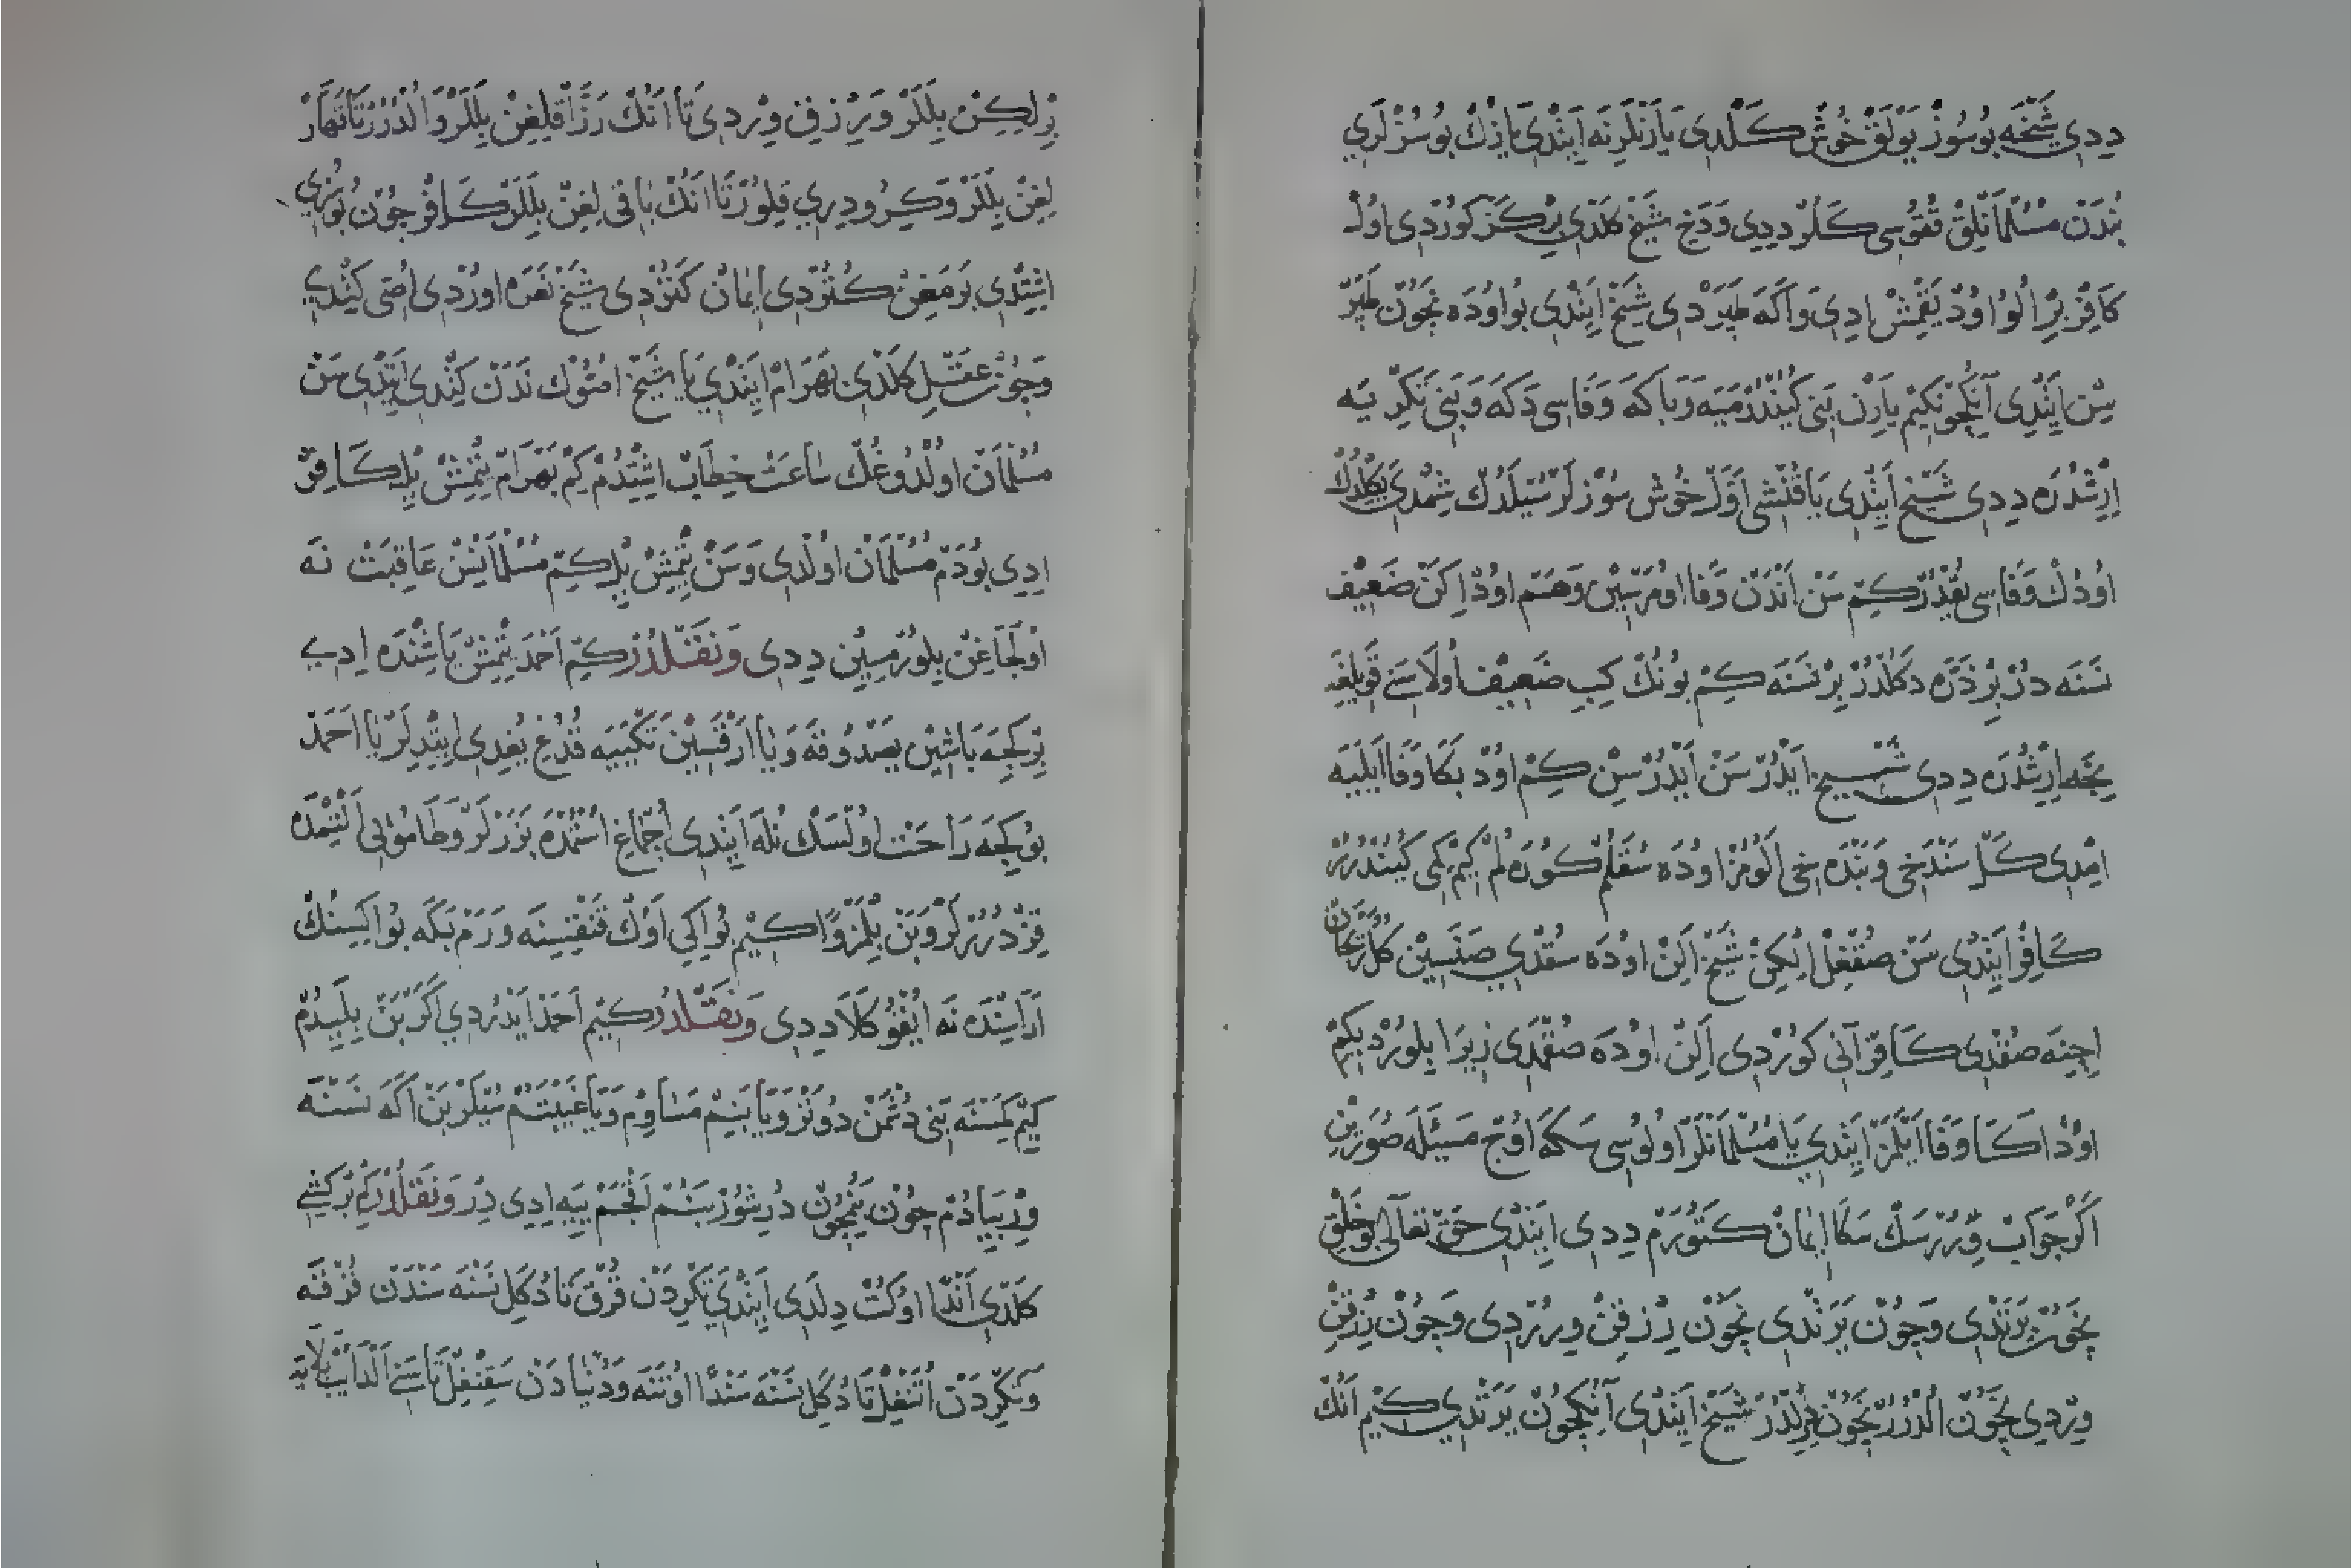 ددی شیخه بو سوز بولق خوش کلدی یارنلرنه ایتدی یازك بو سزلری
بندن مسلمانلق ققوسی کلر ددی ودخ شیخ کلدی بر کز کوردی اول
کافر بر الو اود یقمش ادی واکه طپردی شیخ ایتدی بو اوده نچون طپر
سن ایتدی آنکچونکیم یارن بنی کیندرمیه وبا که وفاسی دکه وبنی تنکریه
ارشدره ددی شیخ ایتدی یا قنشی اول خوش سوزلر سیلدك شمدی یکلدك
اودك وفاسی یقدر کم سن اندن وفا اومرسین وهم اود اکن ضعیف
نسنه در بر ذره دکلدر بر نسنه کم بونك کبی ضعیف اولا سنی قویلغه
نجه ارشدره ددی شیخ ایدر سن ایدرسن کم اود بکا وفا ایلیه
امدی کل سندخی وبندخی الومز اوده سقلم کوره لم کیمکی کیندرر
کافر ایتدی سن صقغل لکن شیخ الن اوده سقدی صنسین کل رعان
اچنه صقدی کافر آنی کوردی الن اوده صقمدی زیرا بلوردیکم
اود اکا وفا ایلمز ایتدی یا مسلمانلر اولوسی سکه اوچ مسئله صورین
اکر جواب ویررسك سکا ایمان کتورم ددی ایتدی حق تعالی بو خلق
نچون یرتدی وچون یرتدی نچون رزقن ویرردی وچون رزقن
ویردی نچون الدرر نچون درلدر شیخ ایتدی آنکچون یرتدی کیم انك
برلکن بللر ویرزق ویردی تا انك رزاقلغن بللر والدرر تا قهار
لغن بللر وکرو دری قلور تا انك باقی لغن بللر کافر چون بو سزی
اشتدی برمغن کتردی ایمان کتردی شیخ نعره اوردی اصی کتدی
وچون عقل کلدی بهرام ایتدی یا شیخ اصوك ندن کتدی ایتدی سن
مسلمان اولدوغك ساعت خطاب اشتدم کم بهرام یتمش یل کافر
ادی بو دم مسلمان اولدی وسن یتمش یل کم مسلمانسن عاقبت نه
اولجاغن بلورمسین ددی ونقلدر کم احمد یتمش یاشنده ادی
بر کجه باشین یصدوغه ویا ارقسین تکییه قدغ یغدی ایتدلر یا احمد
بو کجه راحت اولسك نله ایتدی اجماغ استمده بزرلر وطاموئی التمده
قزدررلر وبن بلمزوا کیم بو ایکی اوك قنقسنه ورم بکه بو ایکسنك
اراسنده نه ایقو کلا ددی ونقلدر کیم احمد ایدردی اکر بن بلیدم
کیم کمسنه بنی دشمن دوتر ویا بنم مساوم ویا غیبتم سیلر بن اکه نسنه
وریبیادم چون ینچون درشور بنم لقجم ییه ادی در ونقلدر کم بر کشی
کلدی اندا اوکت دلدی ایتدی تکردن قرق تا دکل نسنه سندن قرقه
وتکردن انتغل تا دکل نسنه سندا اوتنه ودنیا دن سقنغل تا سنی الدایب بلایه